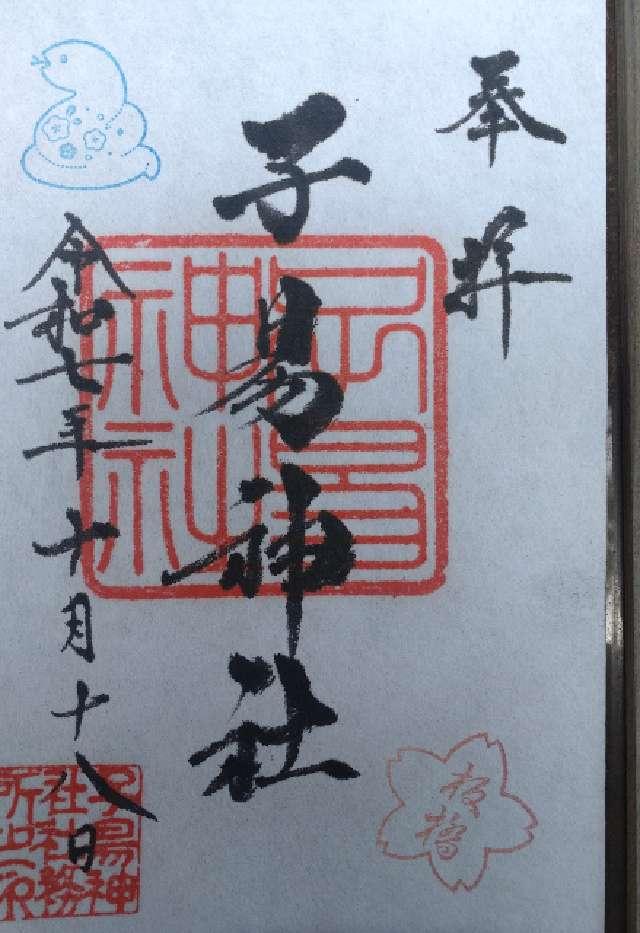 奉拝
子易神社
令和七年十月十八日
子易神社
子易神社社務所之印
板橋